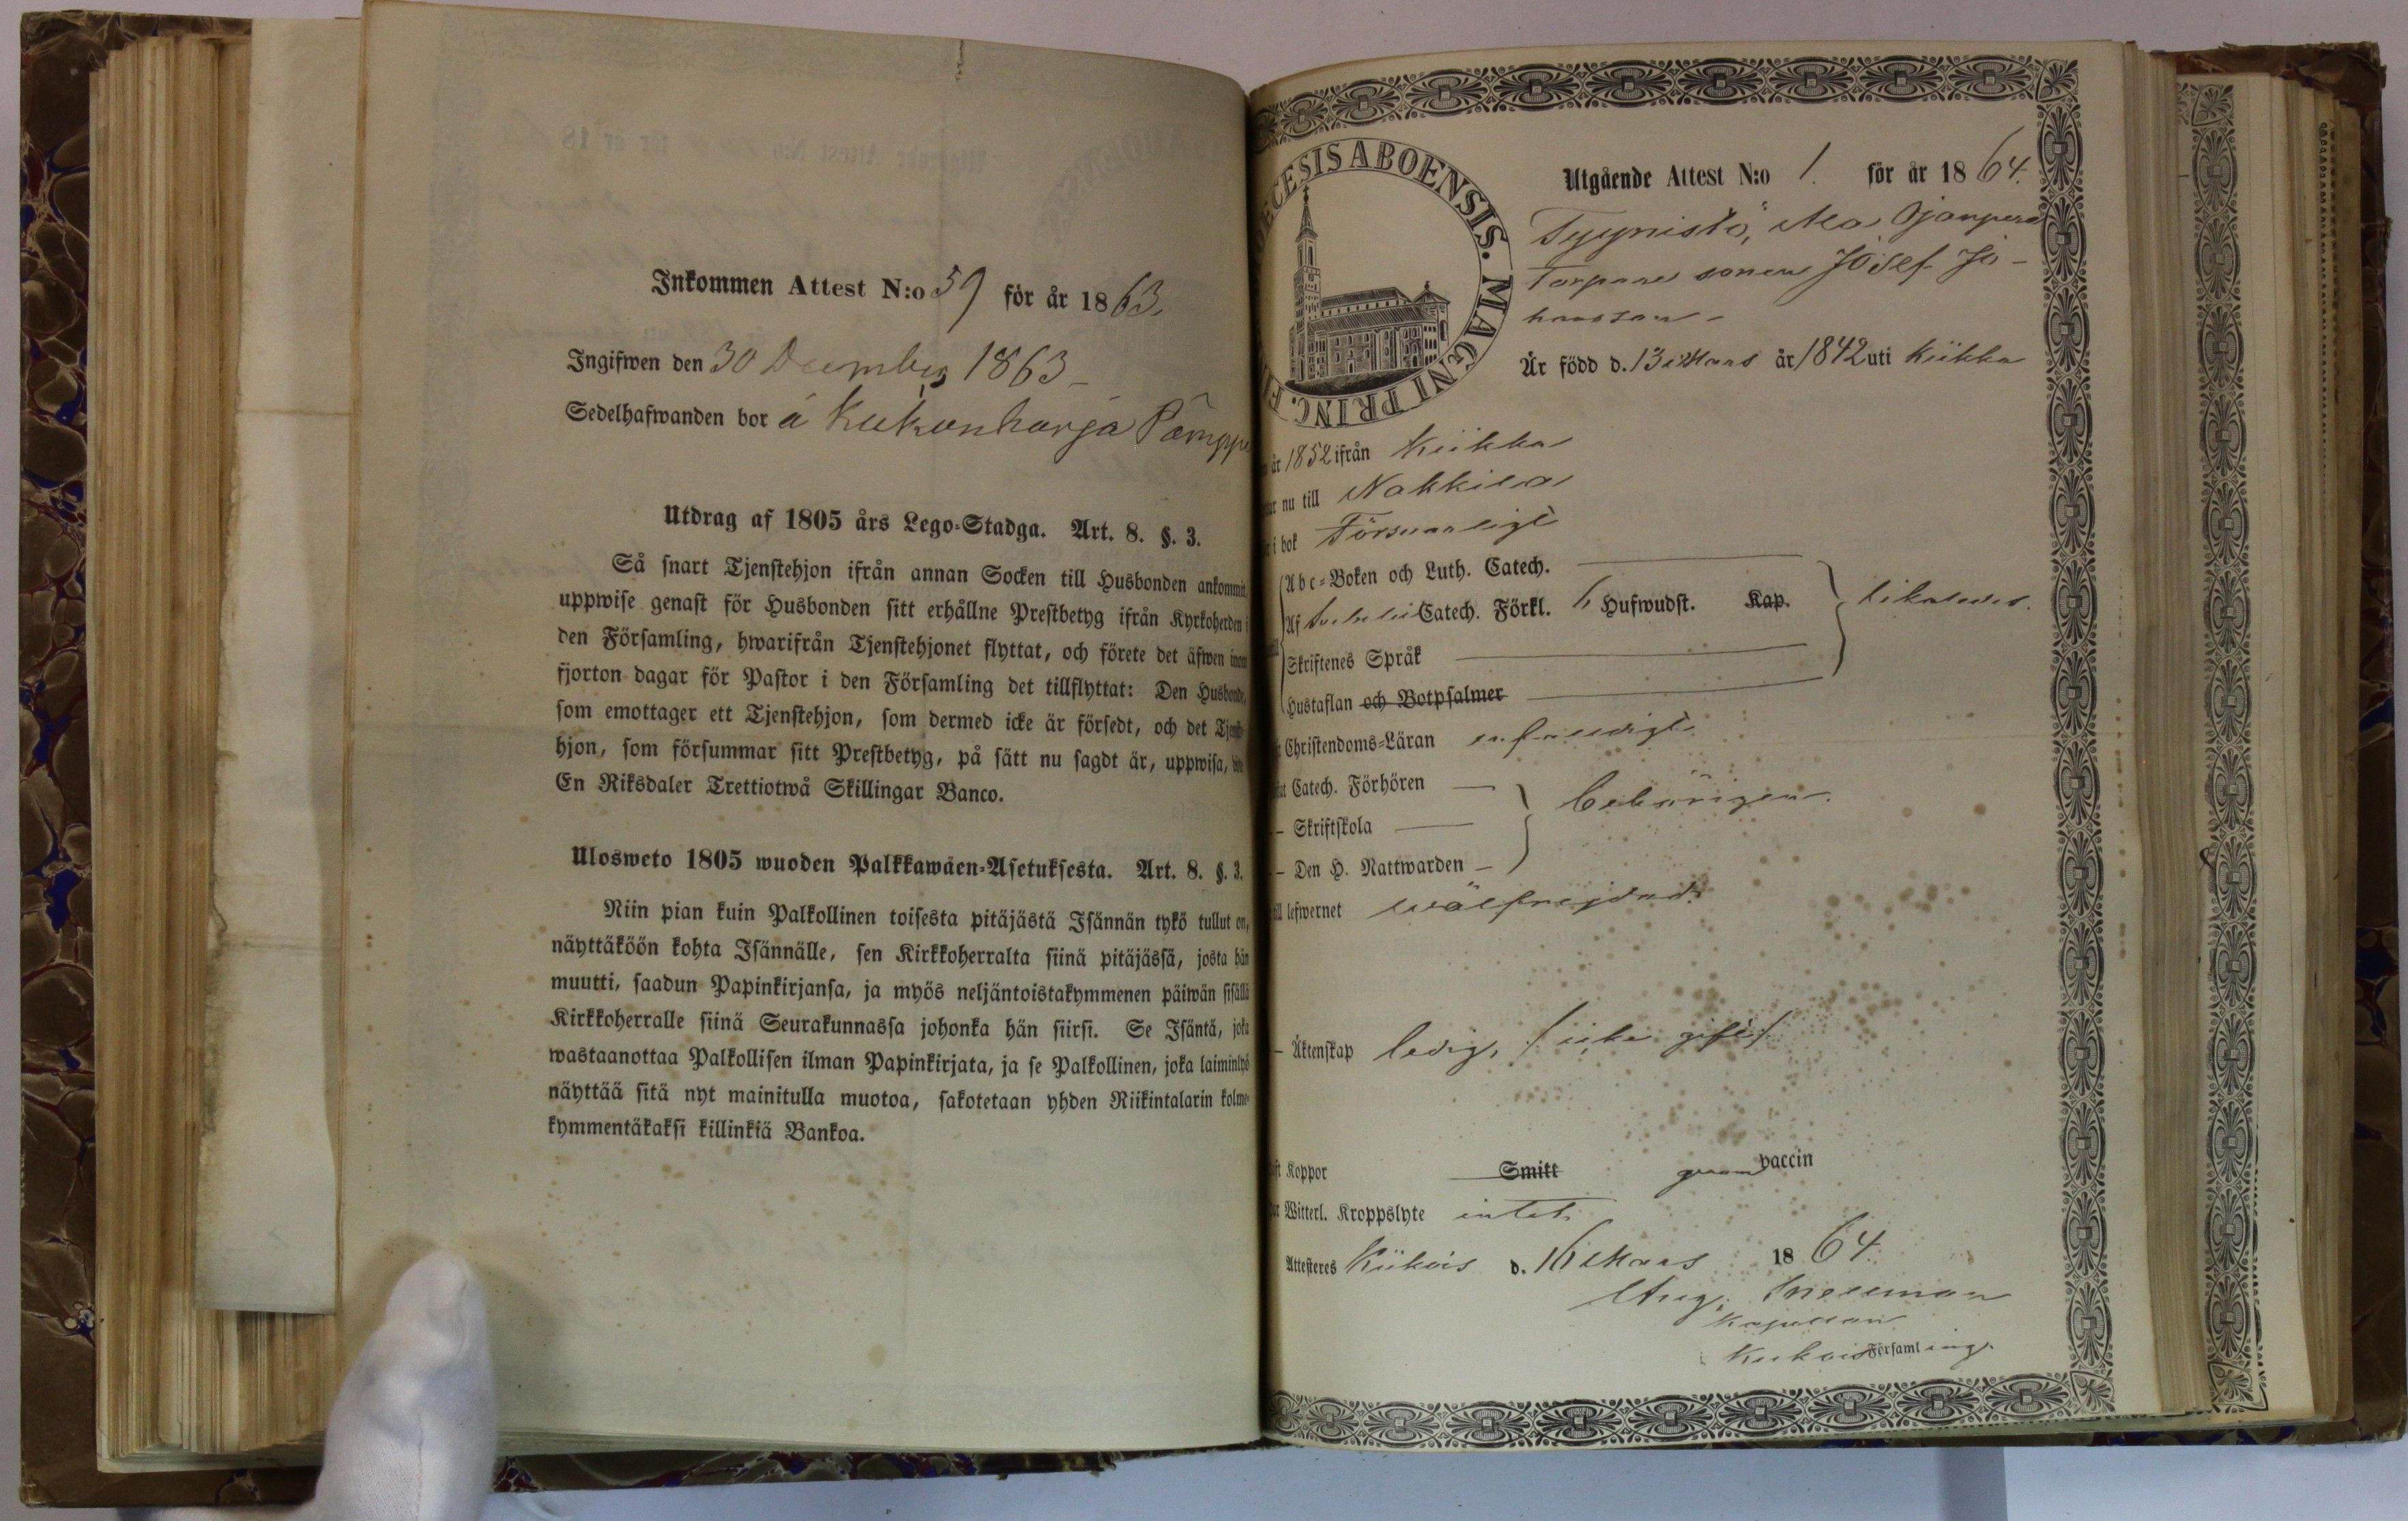 Inkommen Attest N:o 59 för år 1863.
Ingifwen den 30 December 1863
Sedelhafwanden bor å Kukonharja Pämppe
Utdrag af 1805 års Lego-Stadga. Art. 8. §. 3.
Så snart Tjenstehjon ifrån annan Socken till Husbonden ankommit,
uppwise genast för Husbonden sitt erhållne Prestbetyg ifrån Kyrkoherden i
den Församling, hwarifrån Tjenstehjonet flyttat, och förete det äfwen inom
fjorton dagar för Pastor i den Församling det tillflyttat: Den Husbonde,
som emottager ett Tjenstehjon, som dermed icke är försedt, och det Tjenste-
hjon, som försummar sitt Prestbetyg, på sätt nu sagdt är, uppwisa,
En Riksdaler Trettiotwå Skillingar Banco.
Ulosweto 1805 wuoden Palkkawäen-Asetuksesta. Art. 8. §. 3.
Niin pian kuin Palkollinen toisesta pitäjästä Isännän tykö tullut on,
näyttäköön kohta Isännälle, sen Kirkkoherralta siinä pitäjässä, josta hän
muutti, saadun Papinkirjansa, ja myös neljäntoistakymmenen päiwän sisällä
Kirkkoherralle siinä Seurakunnassa johonka hän siirsi. Se Isäntä, joka
wastaanottaa Palkollisen ilman Papinkirjata, ja se Palkollinen, joka laiminlyö
näyttää sitä nyt mainitulla muotoa, sakotetaan yhden Riikintalarin kolme-
kymmentäkaksi killinkiä Bankoa.
ECESIS ABOENSIS. MAGNI PRINC. F
Utgående Attest N:o 1. för år 1864.
Tyynistö, Ala Ojanperä
Torpare sonen Josef Jo-
hansson
Är född d. 13 Mars år 1842 uti Kiikka
år 1852 ifrån Kiikka
nu till Nakkila
i bok Försvarligt
Abc-Boken och Luth. Catech.
Af Catech. Förkl. 6 Hufwudst. Kap. likaledes.
Skriftenes Språk
Hustaflan och Botpsalmer
Christendoms-Läran
Catech. Förhören
behörigen.
– Skriftskola
– Den H. Nattwarden
till lefwernet wälfrejdad.
– Äktenskap ledig, /icke gift/
Koppor Smitt genom vaccin
Witterl. Kroppslyte intet.
Attesteres Kiikois d. 16 Mars 1864.
Aug.
Kapellan
Kiikois Församling.